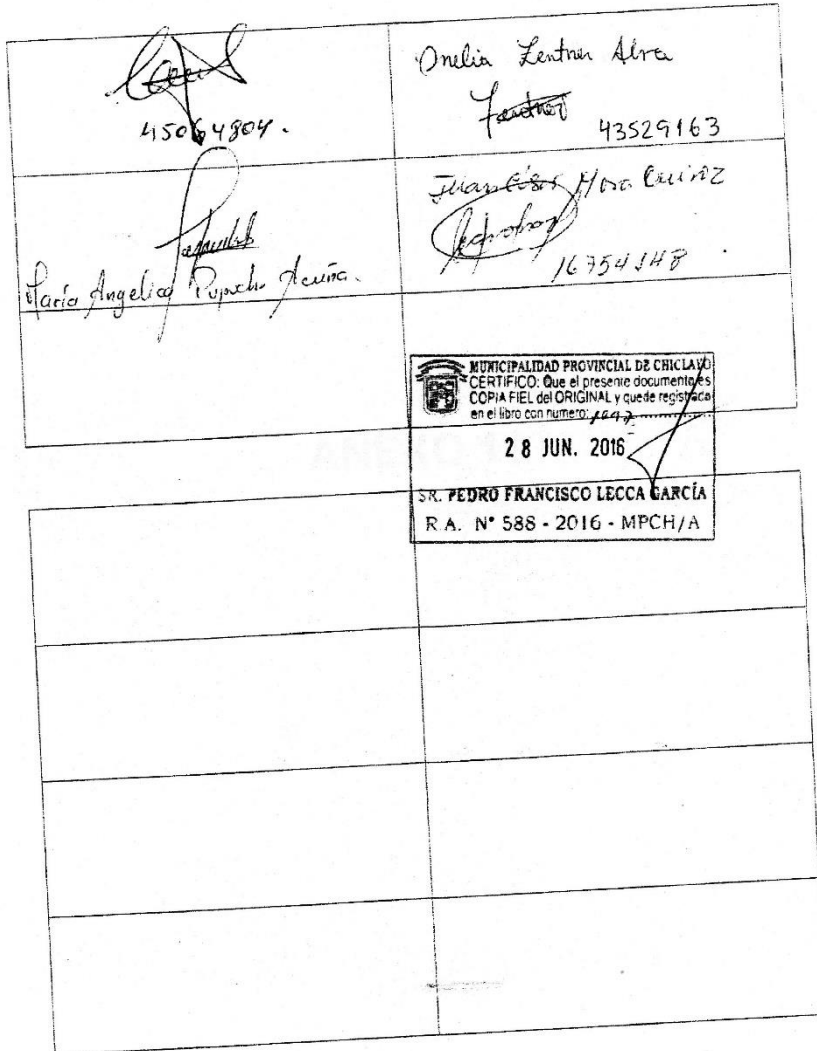 45064804.
Onelia Zentner Alva
Zentner
43529163
María Angelica Pupuche Acuña.
Juan César Mora
16754148
MUNICIPALIDAD PROVINCIAL DE CHICLAYO
CERTIFICO: Que el presente documento es
COPIA FIEL del ORIGINAL y quede registrada
en el libro con numero:
28 JUN. 2016
SR. PEDRO FRANCISCO LECCA GARCÍA
R.A. N° 588 - 2016 - MPCH/A